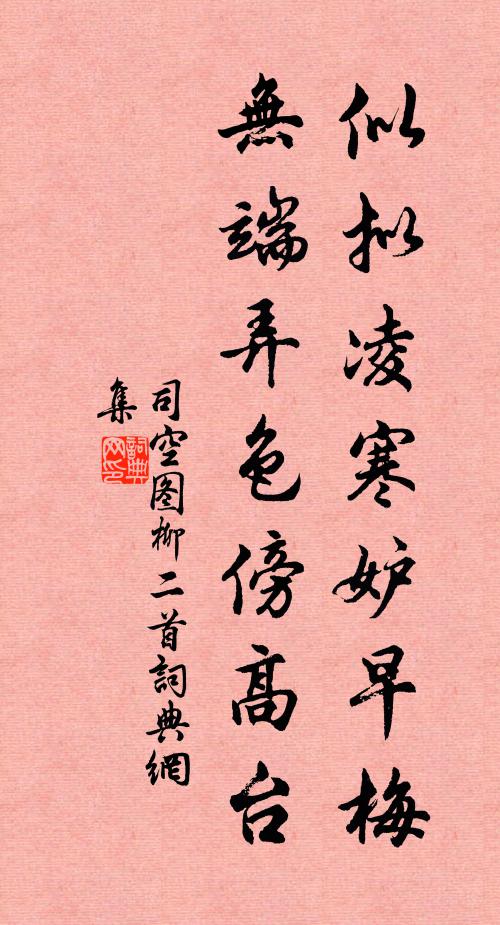 似拟凌寒妒早梅
無端弄色傍高台
司空图柳二首詞典網
集
詞典网印